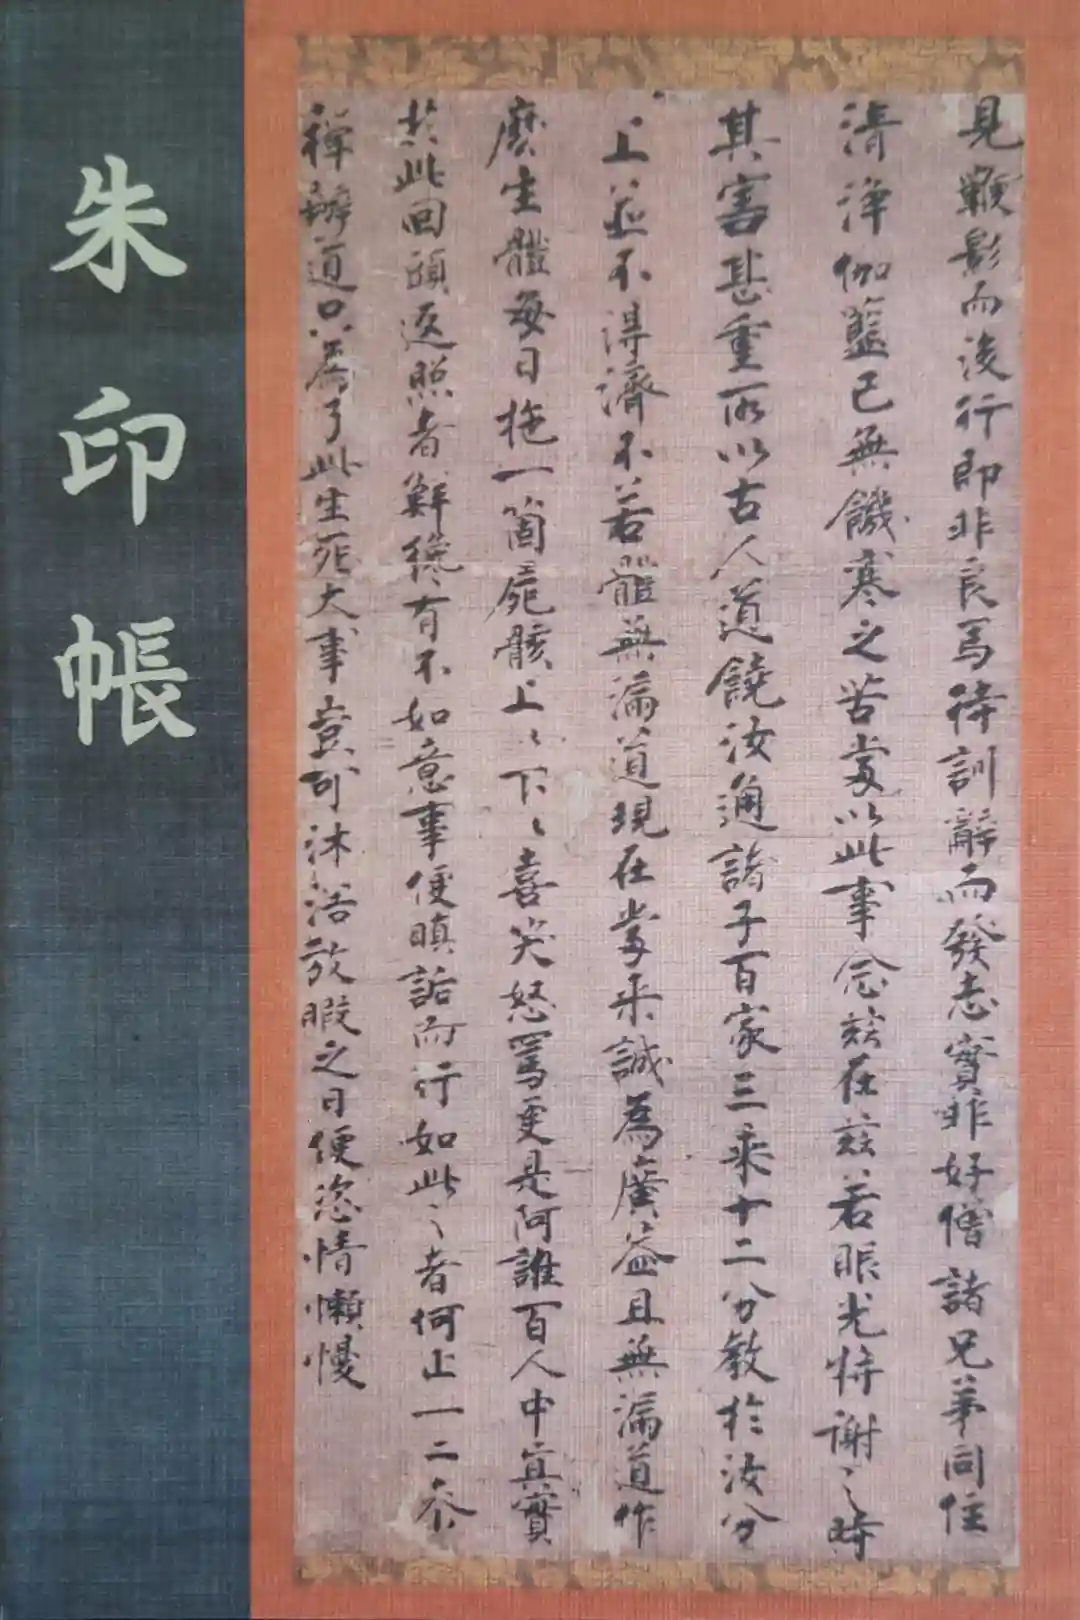 見鞭影而後行即非良馬待訓辭而發志實非好僧諸兄弟同住
清淨伽藍已無饑寒之苦當以此事念茲在茲若眼光將謝之時
其害甚重所以古人道饒汝通諸子百家三乘十二分教於汝分
上並不得濟不若體無漏道現在當來誠為廣益且無漏道作
麼生體每日拖一箇屍骸上〻下〻喜笑怒罵更是阿誰百人中真實
於此回頭返照者鮮纔有不如意事便瞋詬而行如此〻者何止一二參
禪辦道只為了此生死大事豈可沐浴放暇之日便恣情懶慢
朱印帳